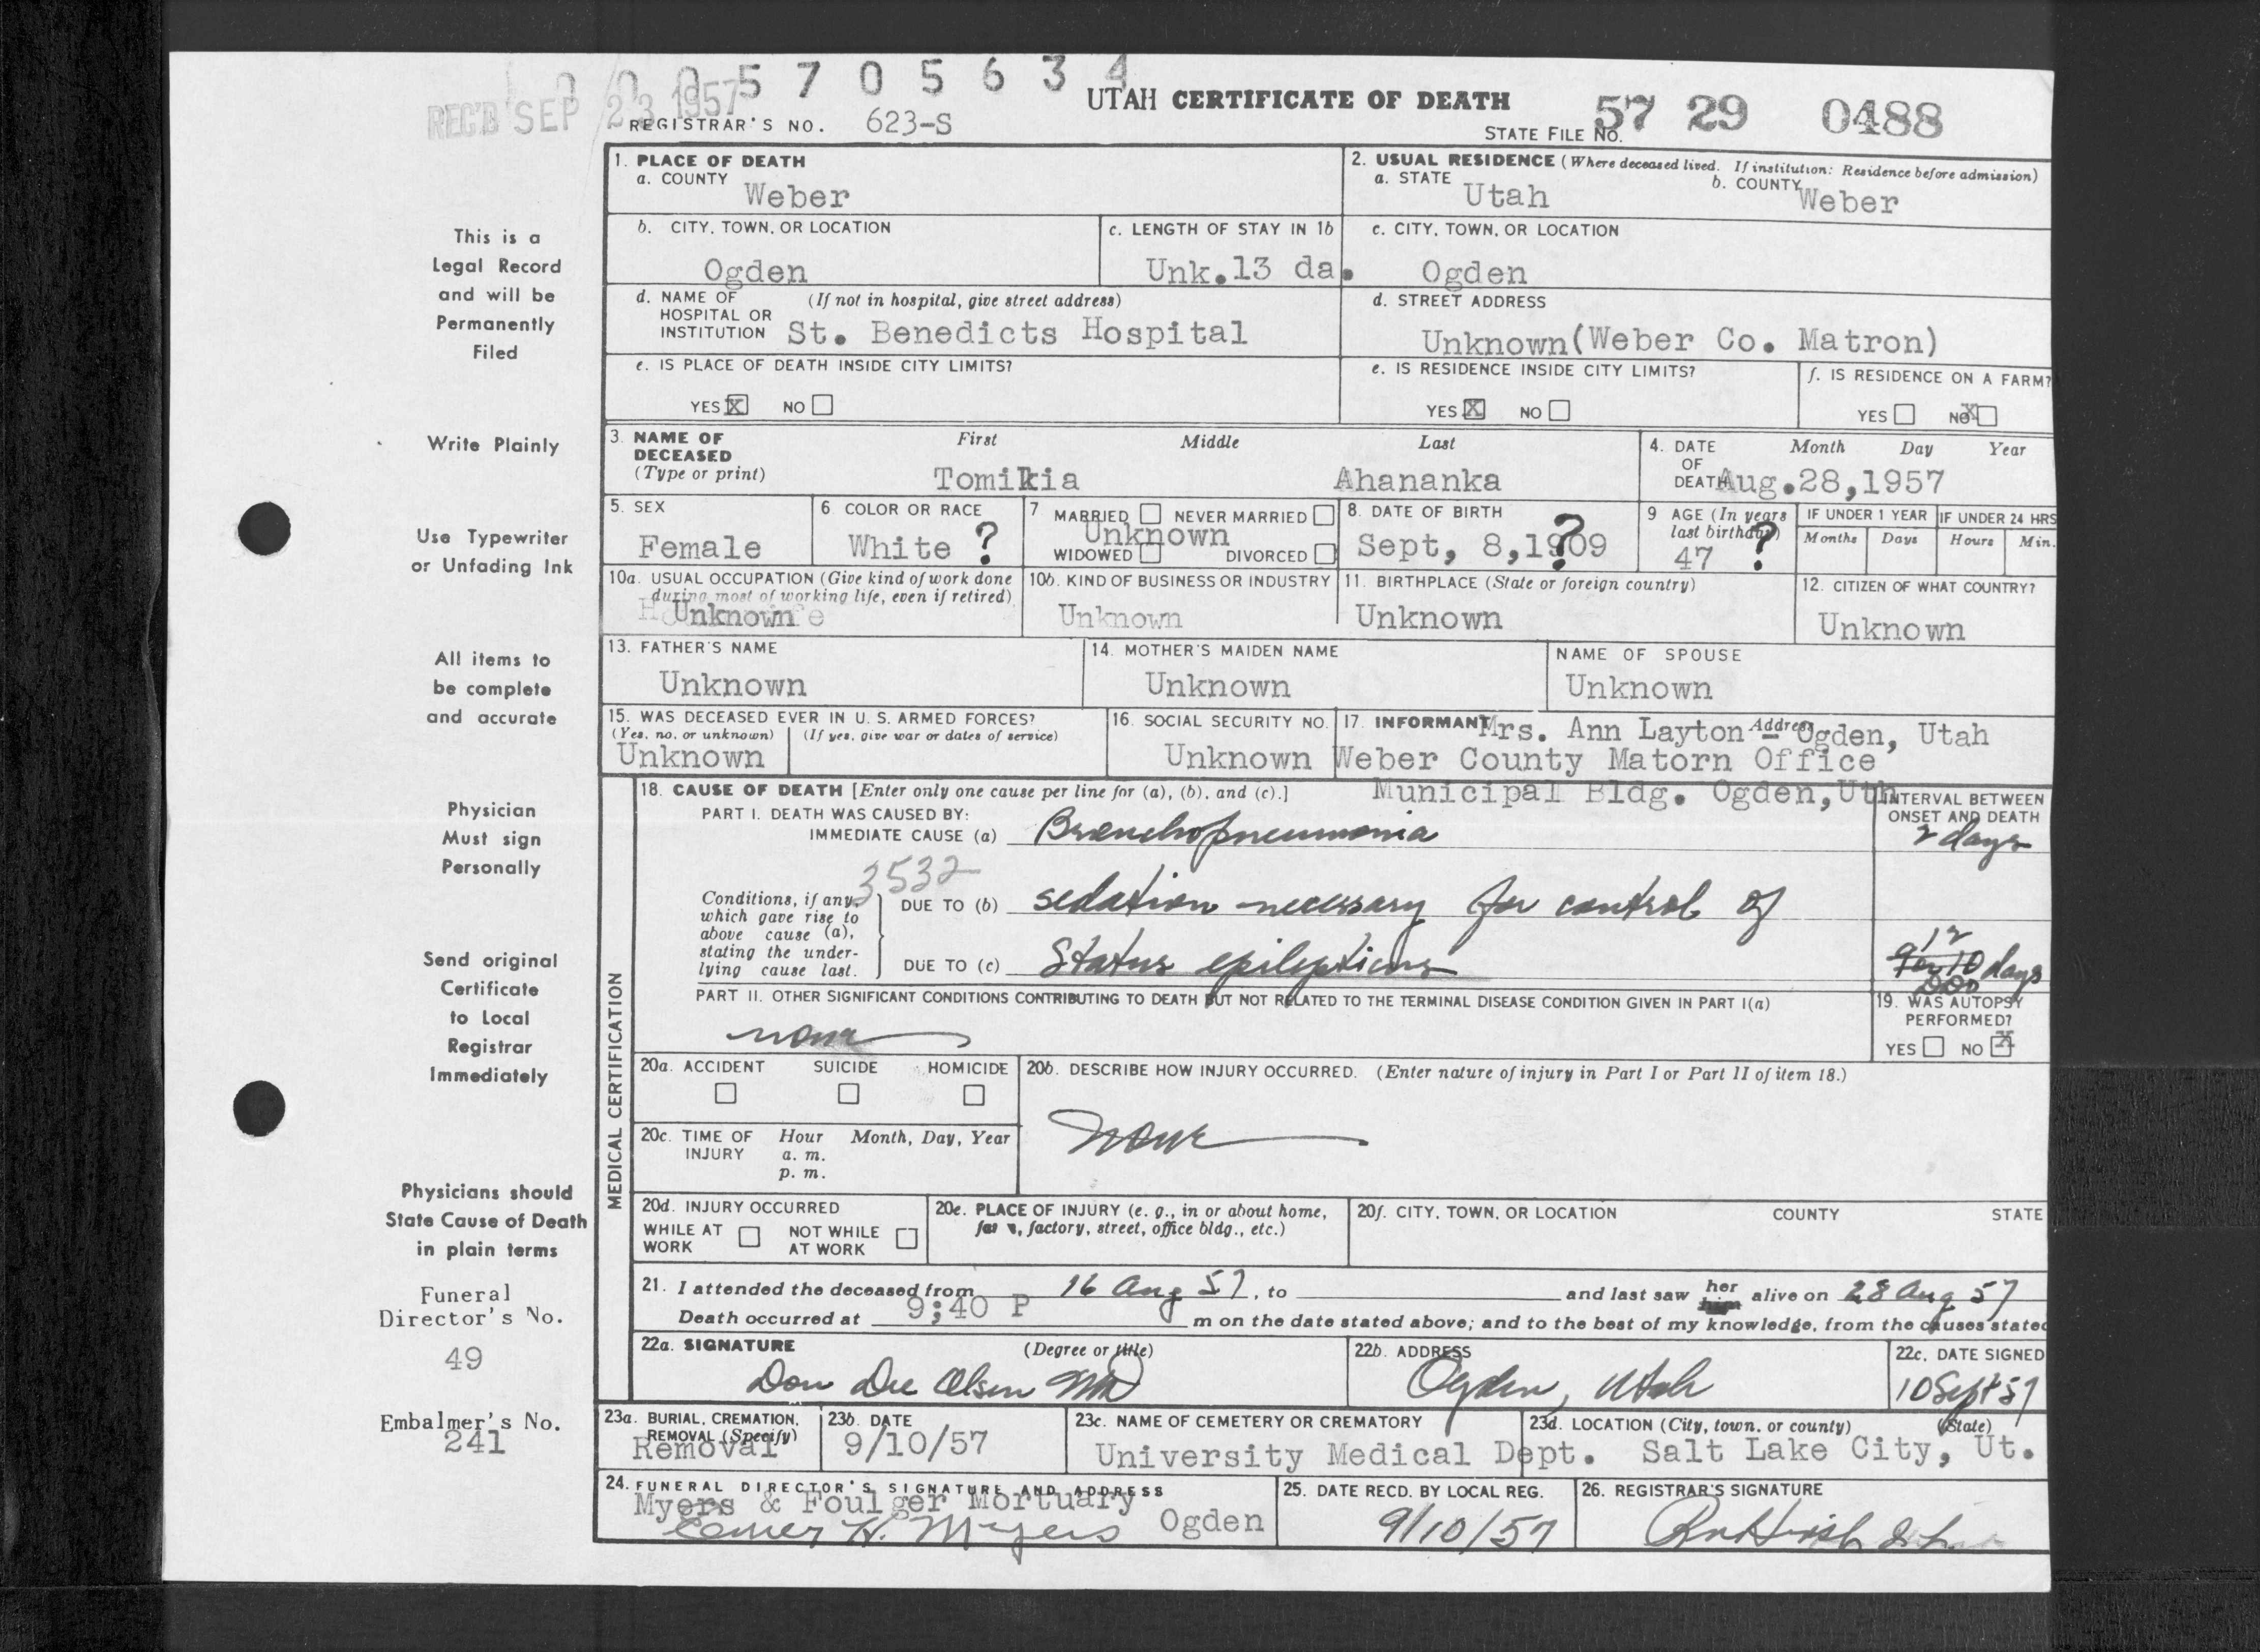 0 0 0 5 7 0 5 6 3 4
REC'D SEP 23 1957
REGISTRAR'S NO. 623-S
UTAH CERTIFICATE OF DEATH
STATE FILE NO. 57 29 0488
This is a
Legal Record
and will be
Permanently
Filed
Write Plainly
Use Typewriter
or Unfading Ink
All items to
be complete
and accurate
Physician
Must sign
Personally
Send original
Certificate
to Local
Registrar
Immediately
Physicians should
State Cause of Death
in plain terms
Funeral
Director's No.
49
Embalmer's No.
241
1. PLACE OF DEATH
a. COUNTY
Weber
2. USUAL RESIDENCE (Where deceased lived. If institution: Residence before admission)
a. STATE Utah
b. COUNTY Weber
b. CITY, TOWN, OR LOCATION
Ogden
c. LENGTH OF STAY IN 1b
Unk. 13 da.
c. CITY, TOWN, OR LOCATION
Ogden
d. NAME OF (If not in hospital, give street address)
HOSPITAL OR
INSTITUTION St. Benedicts Hospital
d. STREET ADDRESS
Unknown (Weber Co. Matron)
e. IS PLACE OF DEATH INSIDE CITY LIMITS?
YES X NO
e. IS RESIDENCE INSIDE CITY LIMITS?
YES X NO
f. IS RESIDENCE ON A FARM?
YES NO X
3. NAME OF DECEASED
(Type or print)
First Middle Last
Tomikia Ahananka
4. DATE OF DEATH
Month Day Year
Aug. 28, 1957
5. SEX
Female
6. COLOR OR RACE
White ?
7 MARRIED NEVER MARRIED
Unknown
WIDOWED DIVORCED
8. DATE OF BIRTH
Sept, 8, 1909 ?
9 AGE (In years last birthday)
47 ?
IF UNDER 1 YEAR
Months Days
IF UNDER 24 HRS
Hours Min.
10a. USUAL OCCUPATION (Give kind of work done
during most of working life, even if retired)
Unknown
10b. KIND OF BUSINESS OR INDUSTRY
Unknown
11. BIRTHPLACE (State or foreign country)
Unknown
12. CITIZEN OF WHAT COUNTRY?
Unknown
13. FATHER'S NAME
Unknown
14. MOTHER'S MAIDEN NAME
Unknown
NAME OF SPOUSE
Unknown
15. WAS DECEASED EVER IN U. S. ARMED FORCES?
(Yes, no, or unknown) (If yes, give war or dates of service)
Unknown
16. SOCIAL SECURITY NO.
Unknown
17. INFORMANT Mrs. Ann Layton Address Ogden, Utah
Weber County Matorn Office
Municipal Bldg. Ogden, Utn
MEDICAL CERTIFICATION
18. CAUSE OF DEATH [Enter only one cause per line for (a), (b), and (c).]
INTERVAL BETWEEN
ONSET AND DEATH
PART I. DEATH WAS CAUSED BY:
IMMEDIATE CAUSE (a) Bronchopneumonia
2 days
3532
Conditions, if any,
which gave rise to
above cause (a),
stating the under-
lying cause last.
DUE TO (b) sedation necessary for control of
DUE TO (c) Status epilepticus
12 days
PART II. OTHER SIGNIFICANT CONDITIONS CONTRIBUTING TO DEATH BUT NOT RELATED TO THE TERMINAL DISEASE CONDITION GIVEN IN PART I(a)
none
19. WAS AUTOPSY
PERFORMED?
YES NO X
20a. ACCIDENT SUICIDE HOMICIDE
20b. DESCRIBE HOW INJURY OCCURRED. (Enter nature of injury in Part I or Part II of item 18.)
none
20c. TIME OF INJURY
Hour Month, Day, Year
a. m.
p. m.
20d. INJURY OCCURRED
WHILE AT WORK NOT WHILE AT WORK
20e. PLACE OF INJURY (e. g., in or about home,
farm, factory, street, office bldg., etc.)
20f. CITY, TOWN, OR LOCATION COUNTY STATE
21. I attended the deceased from 16 Aug 57, to and last saw her him alive on 28 Aug 57
Death occurred at 9;40 P m on the date stated above; and to the best of my knowledge, from the causes stated
22a. SIGNATURE (Degree or title)
Don Dee Olsen MD
22b. ADDRESS
Ogden, Utah
22c. DATE SIGNED
10 Sept 57
23a. BURIAL, CREMATION,
REMOVAL (Specify)
Removal
23b. DATE
9/10/57
23c. NAME OF CEMETERY OR CREMATORY
University Medical Dept.
23d. LOCATION (City, town, or county) (State)
Salt Lake City, Ut.
24. FUNERAL DIRECTOR'S SIGNATURE AND ADDRESS
Myers & Foulger Mortuary
Elmer H. Myers Ogden
25. DATE RECD. BY LOCAL REG.
9/10/57
26. REGISTRAR'S SIGNATURE